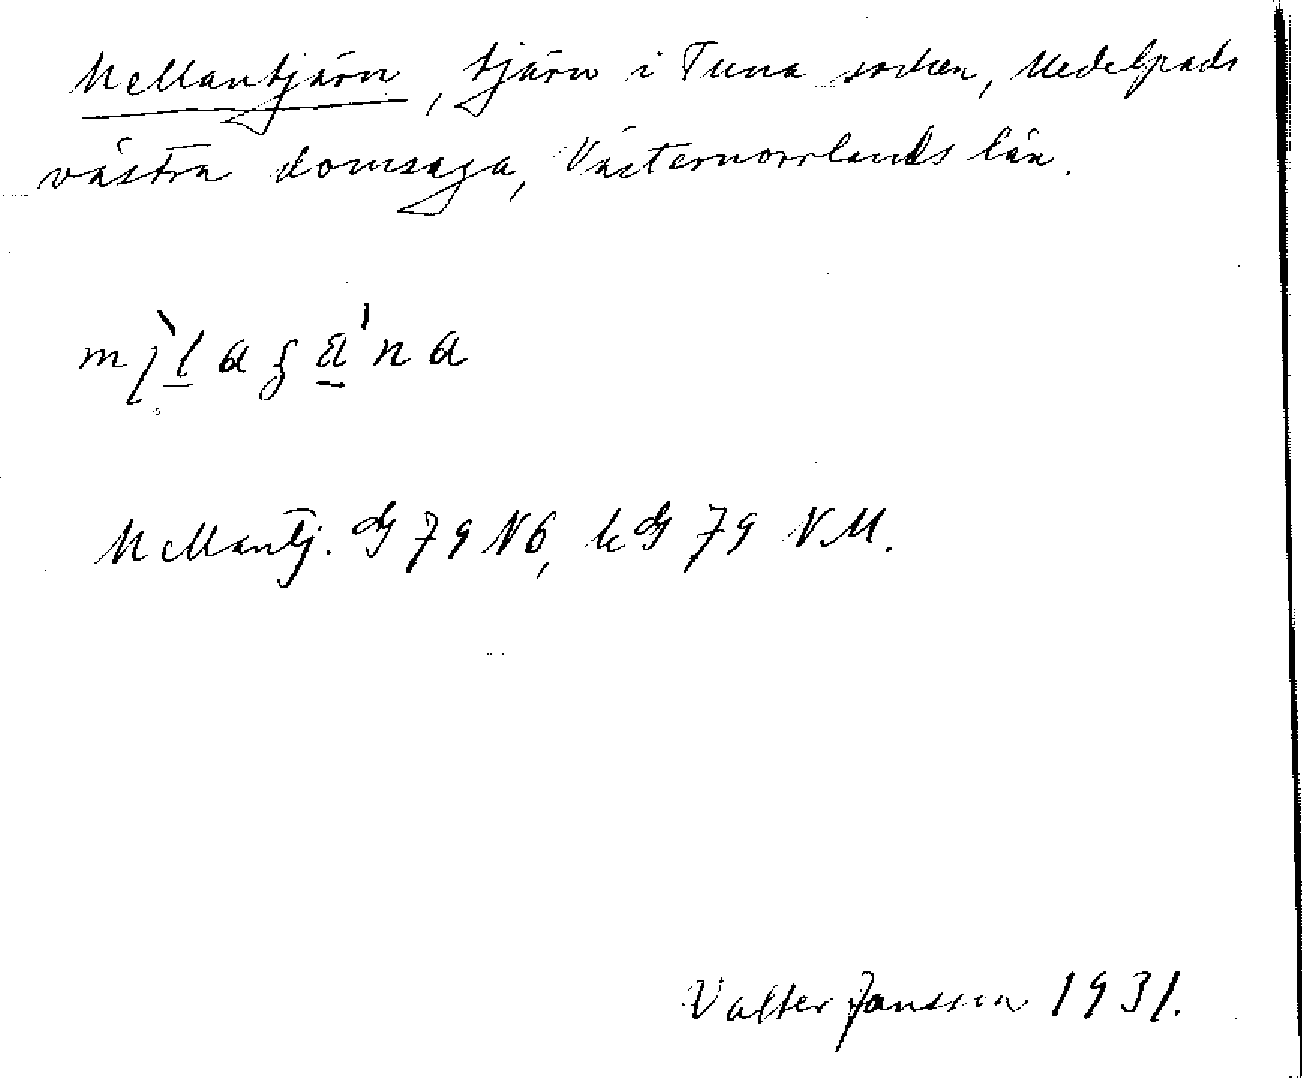 Mellantjärn, tjärn i Tuna socken, Medelpads
västra domsaga, Västernorrlands län.
Mellantj. G 79 N6, kG 79 NM.
Valter Jansson 1931.